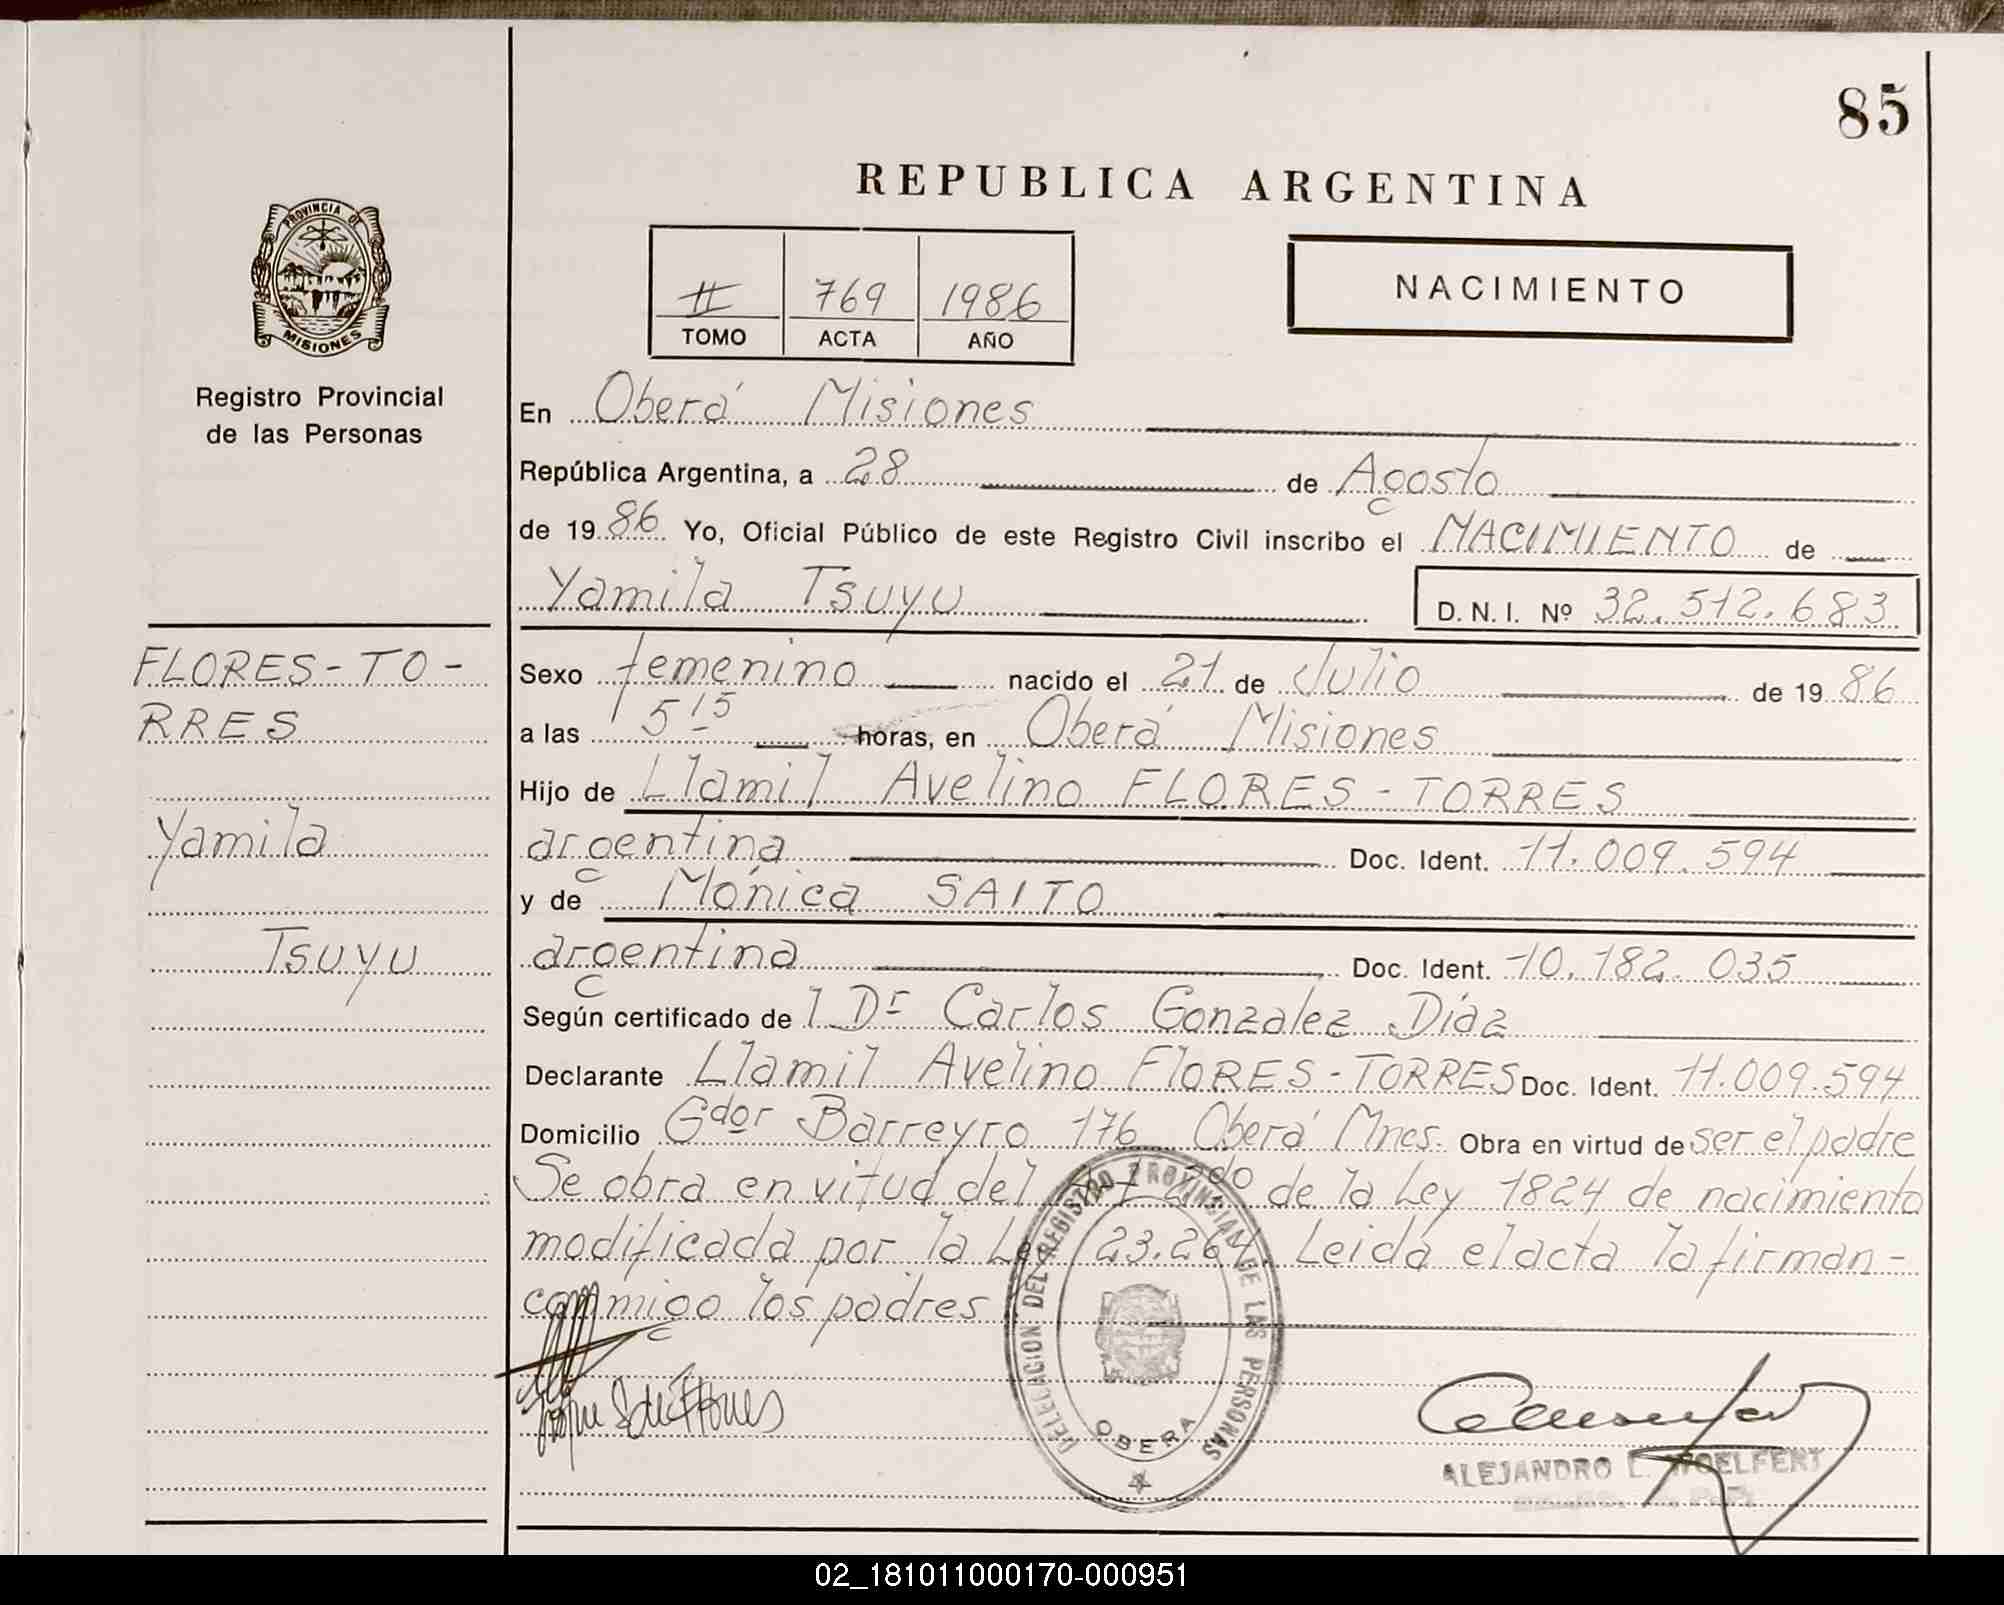 85
REPUBLICA ARGENTINA
PROVINCIA DE
MISIONES
Registro Provincial
de las Personas
II 769 1986
TOMO ACTA AÑO
NACIMIENTO
En Oberá Misiones
República Argentina, a 28 de Agosto
de 1986 Yo, Oficial Público de este Registro Civil inscribo el NACIMIENTO de
Yamila Tsuyu D. N. I. Nº 32.512.683
FLORES-TO-
RRES
Yamila
Tsuyu
Sexo femenino nacido el 21 de Julio de 1986
a las 5 15 horas, en Oberá Misiones
Hijo de Llamil Avelino FLORES-TORRES
argentina Doc. Ident. 11.009.594
y de Mónica SAITO
argentina Doc. Ident. 10.182.035
Según certificado del Dr Carlos Gonzalez Díaz
Declarante Llamil Avelino FlORES-TORRES Doc. Ident. 11.009.594
Domicilio Gdor Barreyro 176 Oberá Mnes. Obra en virtud de ser el padre
Se obra en vitud del 2do de la Ley 1824 de nacimiento
modificada por la Ley 23.264. Leida el acta la firman-
conmigo los padres
DELEGACION DEL REGISTRO PROVINCIAL DE LAS PERSONAS
OBERA
ALEJANDRO L. WOELFERT
02_181011000170-000951